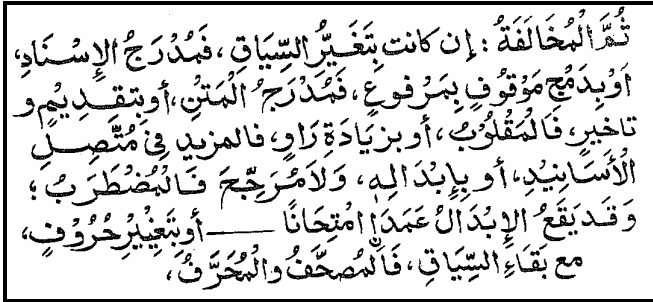 ثُمَّ الْمُخَالَفَةُ : إن كانت بِتَغَيُّرِ السِّيَاقِ ، فَمُدْرَجُ الإِسْنَادِ ،
اَوْ بِدَمْجِ مَوْقُوفٍ بِمَرْفُوعٍ ، فَمُدْرَجُ الْمَتْنِ ، أو بِتقديمٍ و
تاخيرٍ ، فَالْمَقْلُوبُ ، أو بزيَادَةِ رَاوٍ ، فالمزيد فِي مُتَّصِلِ
الْأَسَانِيْدِ ، أو بِإِبْدَالِهٖ ، وَلَا مُرَجِّحَ فَالْمُضْطَرَبُ ؛
وَقَد يَقَعُ الإِبْدَالُ عَمَدًا امْتِحَانًا —— أو بِتَغْيِيْرِ حُرُوْفٍ ،
مع بَقَاءِ السِّيَاقِ ، فَالْمُصَحَّفُ وَالْمُحَرَّفُ ،